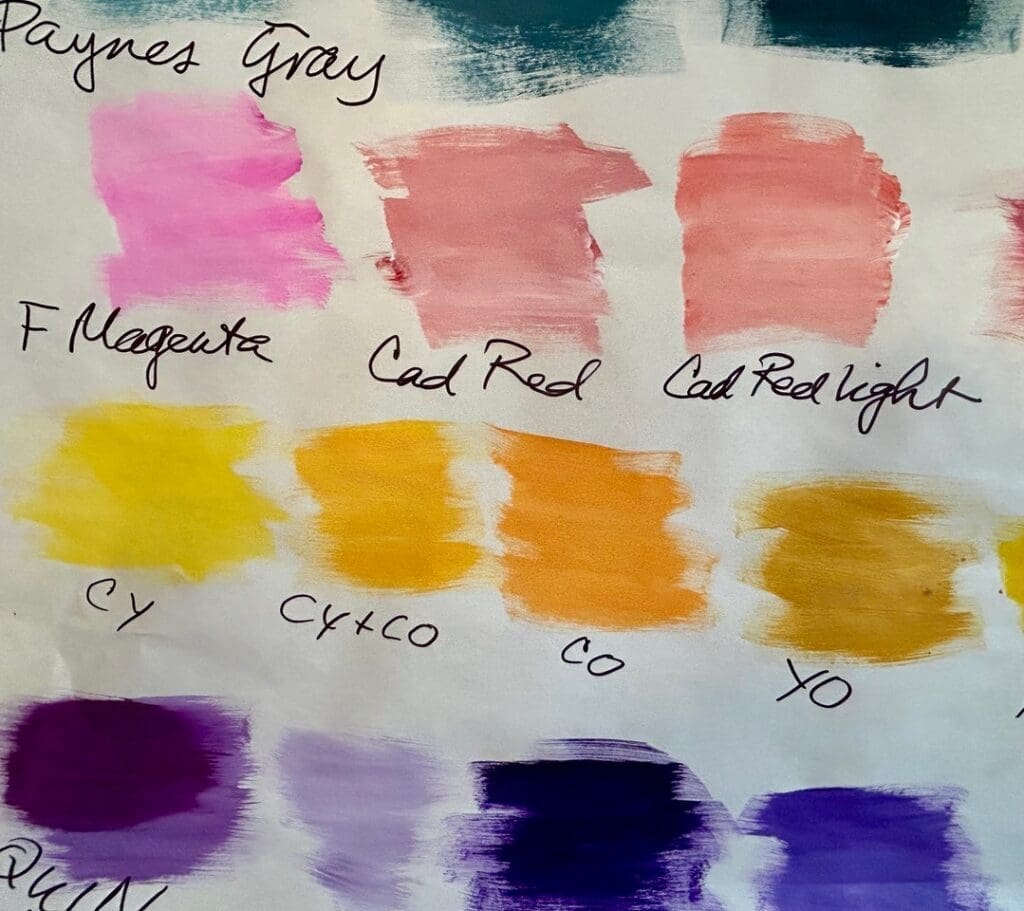 Paynes Gray
F Magenta Cad Red Cad Red light
CY CY+CO CO YO